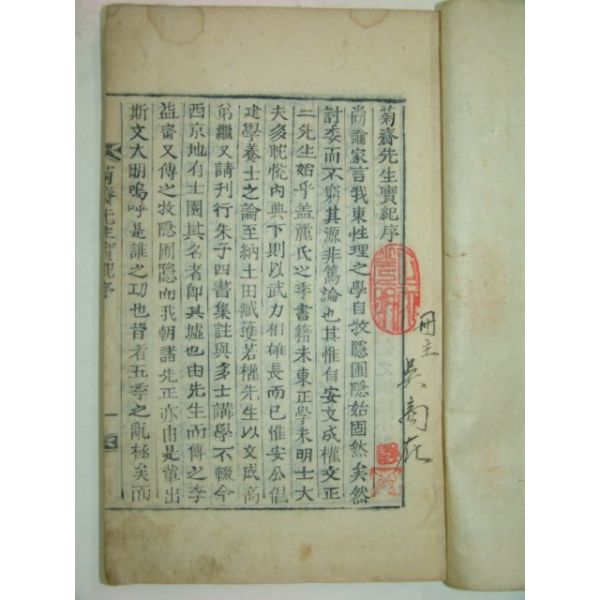 菊齋先生實紀序
尙論家言我東性理之學自牧隱圃隱始固然矣然
討委而不窮其源非篤論也其惟自安文成權文正
二先生始乎盖麗氏之季書籍未東正學未明士大
夫多耽悅內典下則以武力相雄長而已惟安公倡
建學養士之論至納土田臧獲若權先生以文成高
弟繼又請刊行朱子四書集註與多士講學不輟今
西京地有士園其名者卽其墟也由先生而傳之李
益齋又傳之牧隱圃隱而我朝諸先正亦由是輩出
斯文大明嗚呼是誰之功也昔者五季之亂極矣而
菊齋先生實紀序
一
冊主
吳